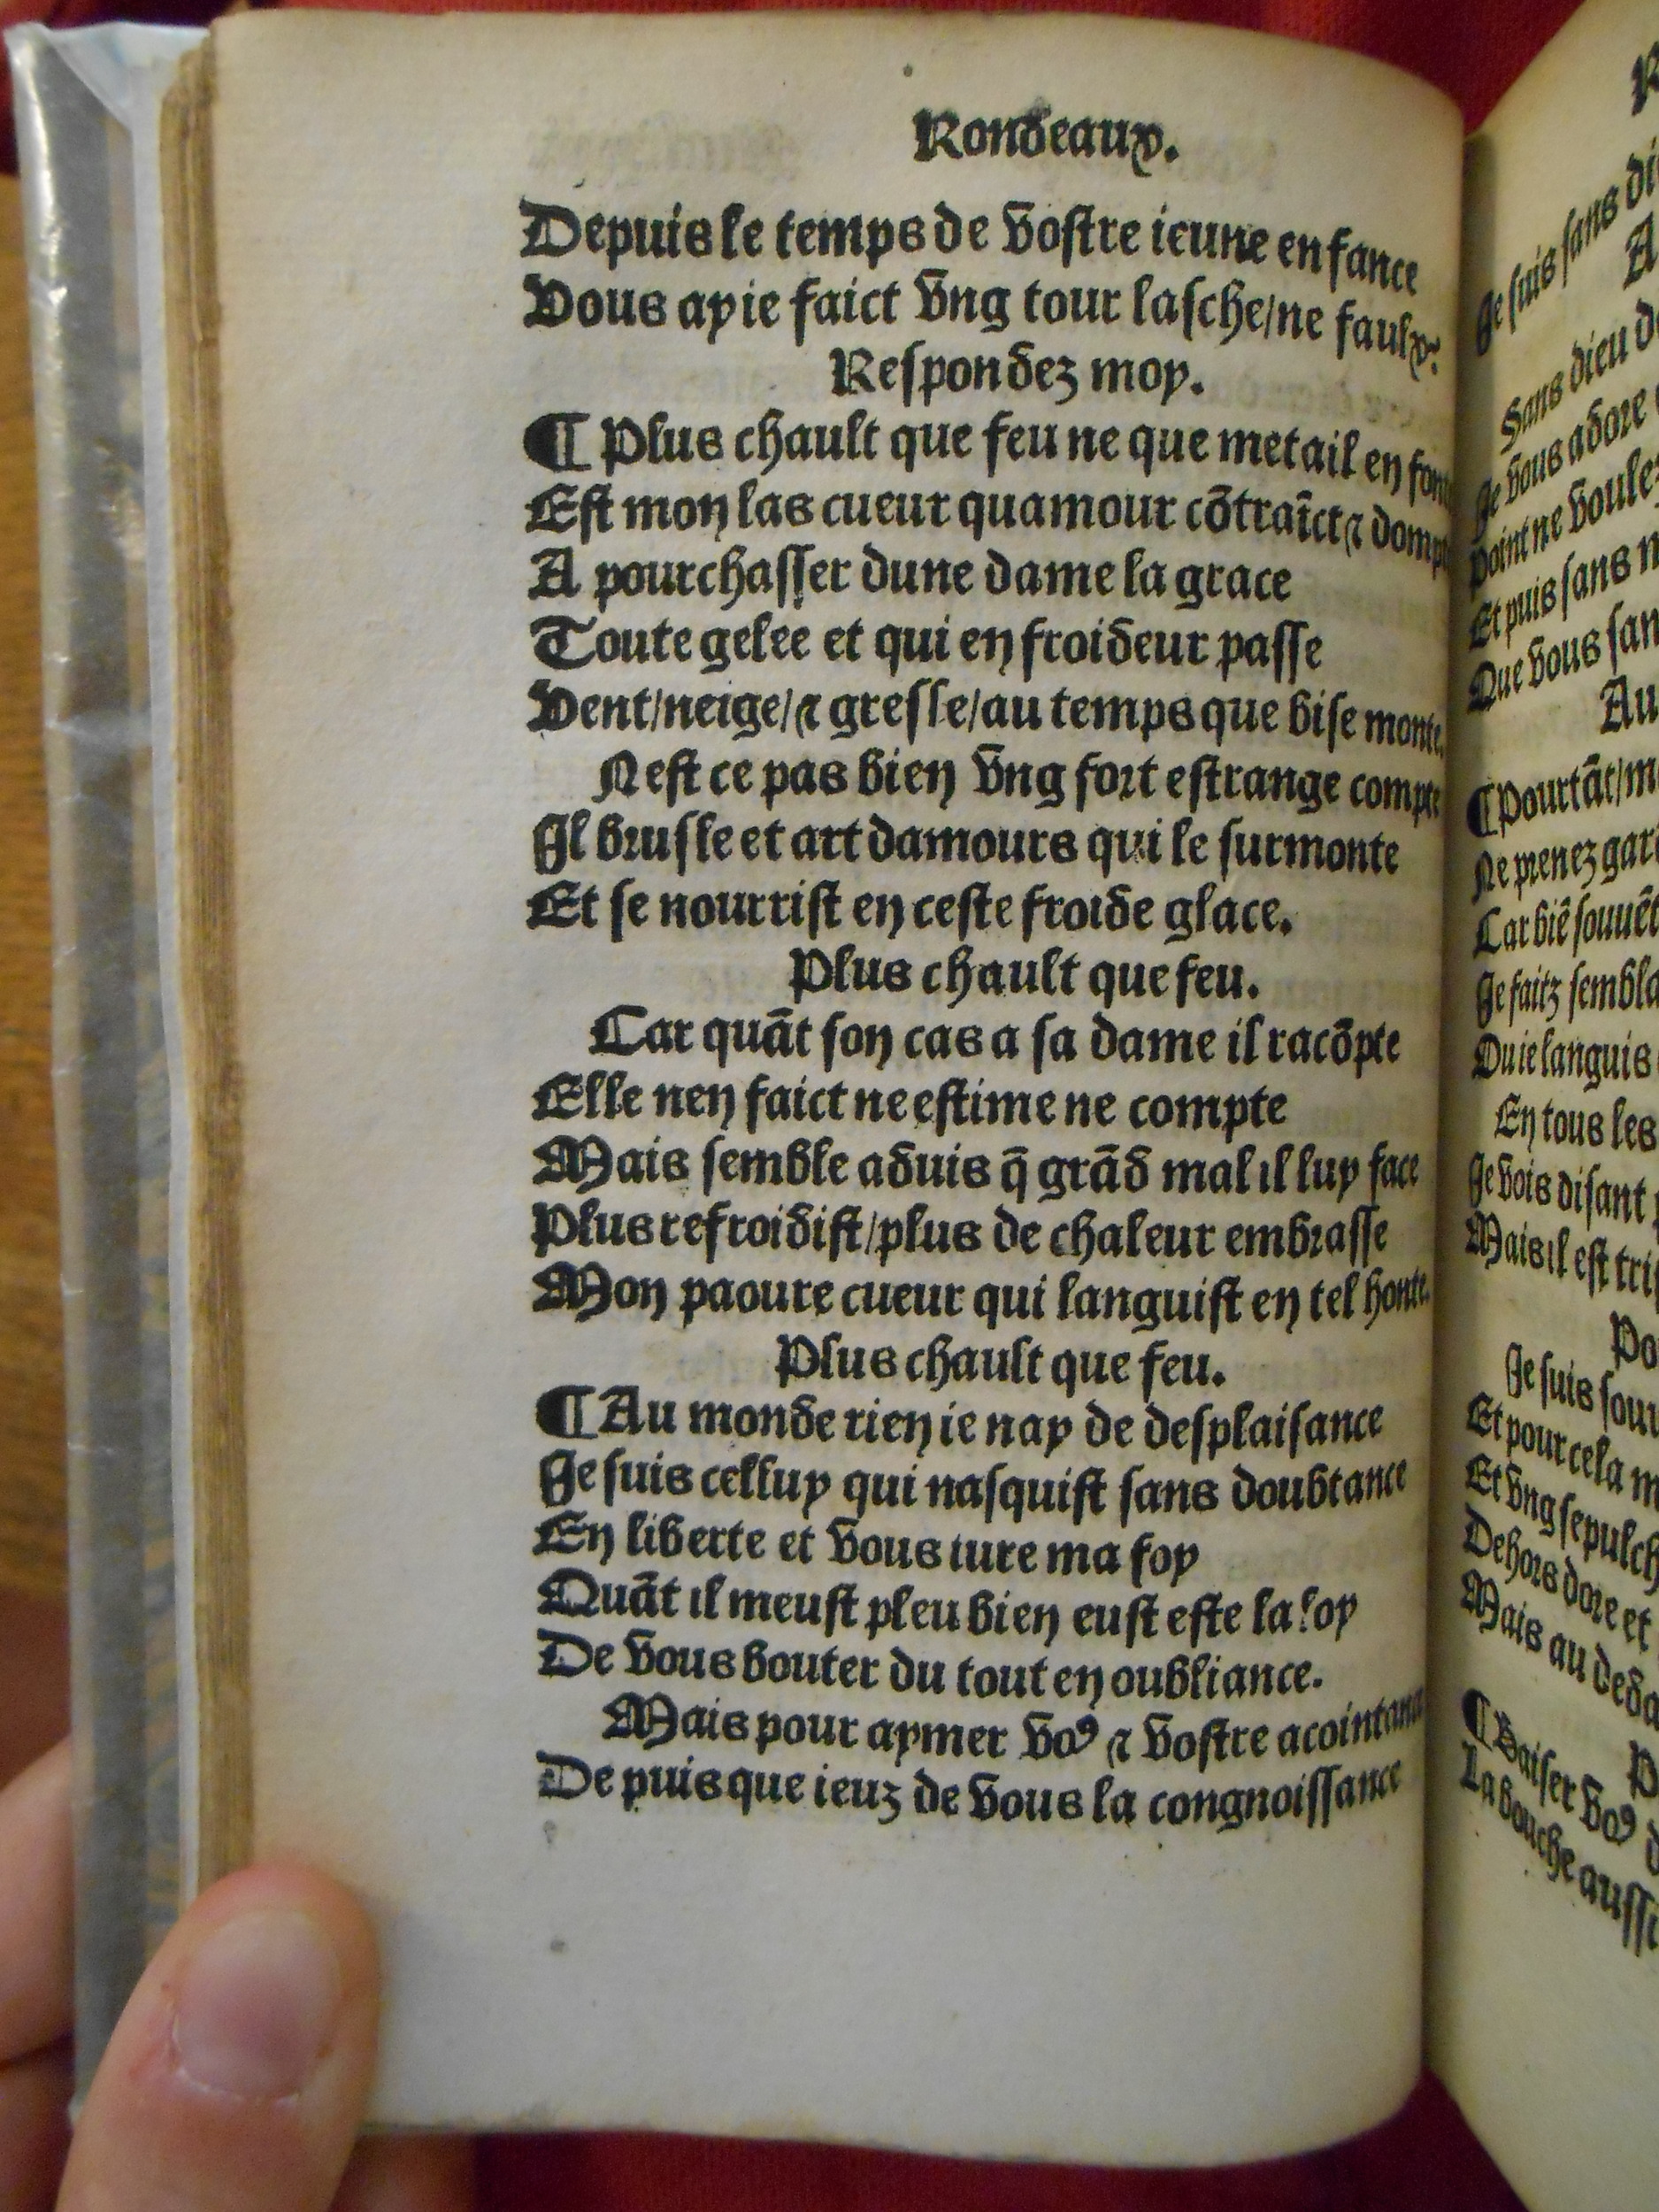 Rondeaux.
Depuis le temps de vostre ieune enfance
Vous ay ie faict vng tour lasche/ne faulx?
Respondez moy.
¶ Plus chault que feu ne que metail en
Est mon las cueur quamour cõtraĩct ⁊
A pourchasser dune dame la grace
Toute gelee et qui en froideur passe
Vent/neige/⁊ gresle/au temps que bise monte.
Nest ce pas bien vng fort estrange compte
Il brusle et art damours qui le surmonte
Et se nourrist en ceste froide glace.
Plus chault que feu.
Car quãt son cas a sa dame il racõpte
Elle nen faict ne estime ne compte
Mais semble aduis q̃ grãd mal il luy face
Plus refroidist/plus de chaleur embrasse
Mon paoure cueur qui languist en tel honte.
Plus chault que feu.
¶ Au monde rien ie nay de desplaisance
Je suis celluy qui nasquist sans doubtance
En liberte et vous iure ma foy
Quãt il meust pleu bien eust este la loy
De vous bouter du tout en oubliance.
Mais pour aymer voꝰ ⁊ vostre
Depuis que ieuz de vous la congnoissance
Je suis sans
A
Sans dieu
Je vous adore
Point ne
Et puis sans
Que vous
Au
¶ Pourtãt/
Ne prenez
Car biẽ souuẽt
Je faitz
Ou ie languis
En tous les
Je vois disant
Mais il est
Je suis
Et pour cela
Et vng
Dehors dore et
Mais au
¶ Baiser voꝰ
La bouche aussi